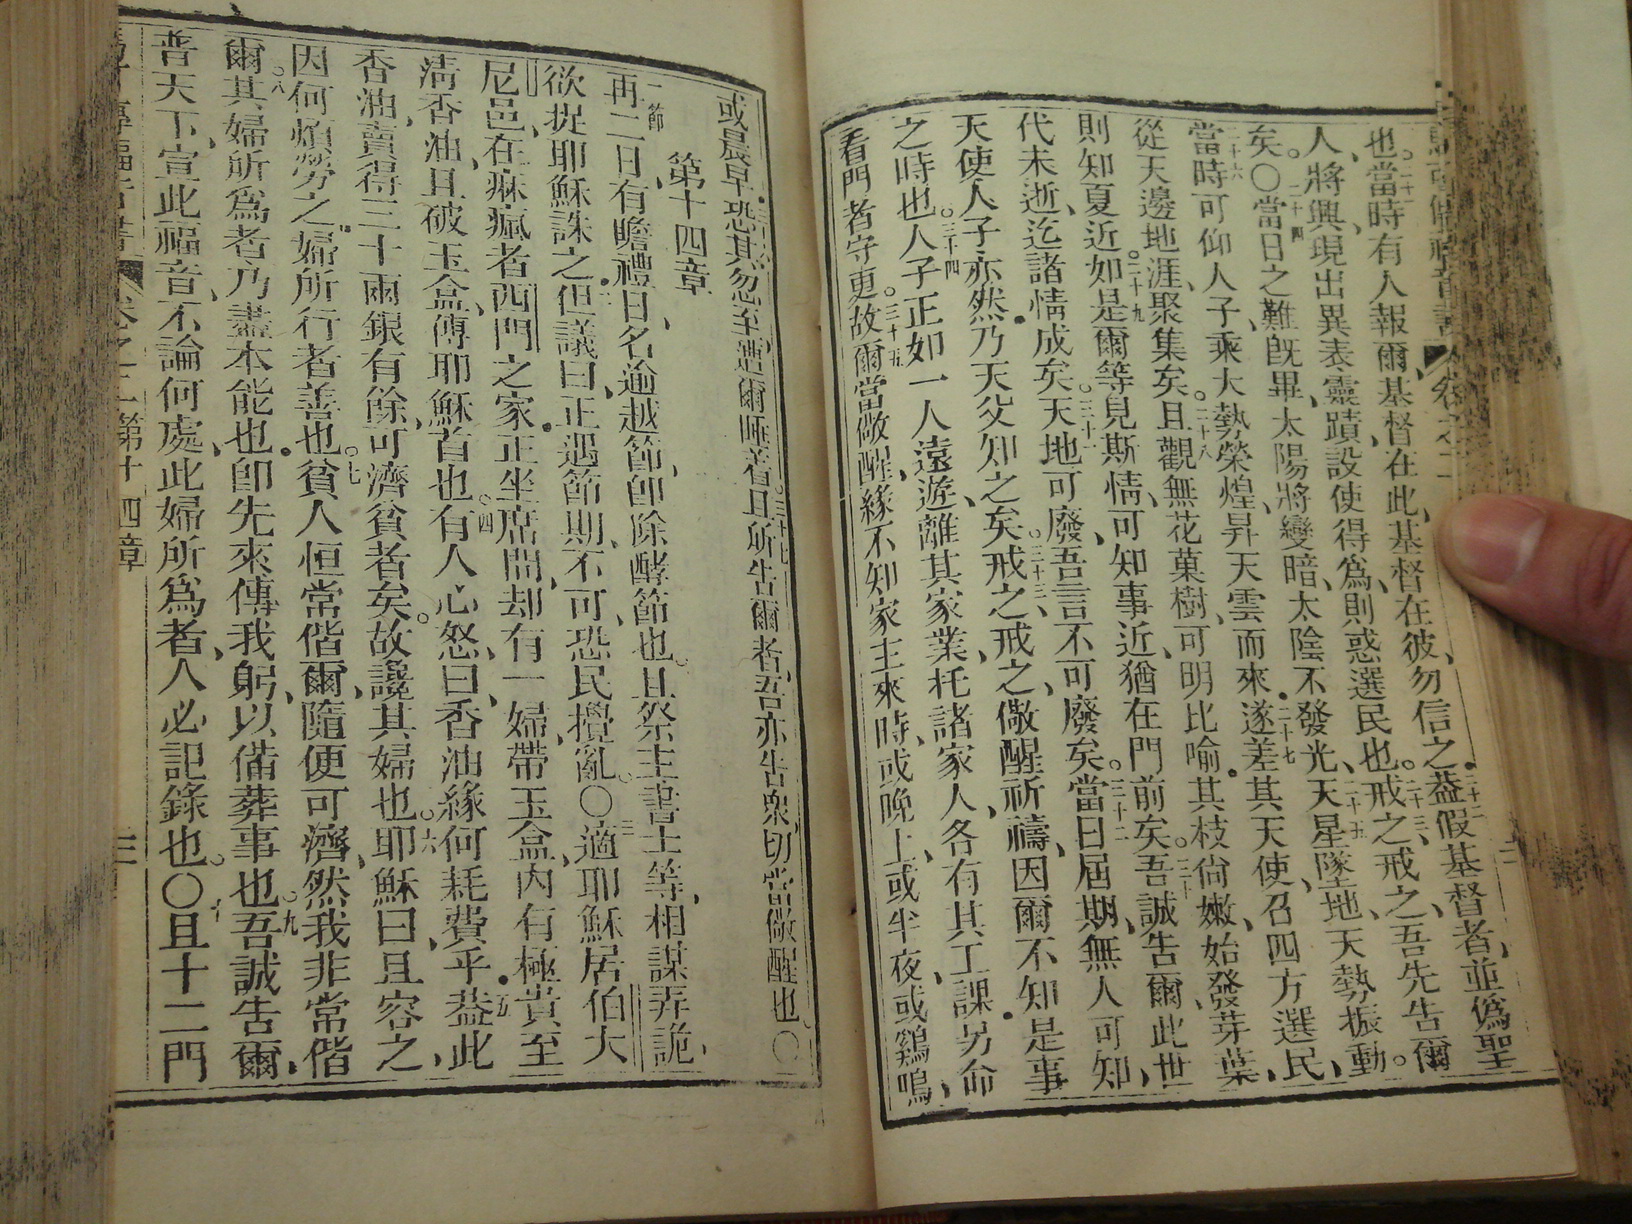 也當時有人報爾基督在此基督在彼勿信之蓋假基督者並偽聖
人將興現出異表靈蹟設使得為則惑選民也戒之戒之吾先告爾
矣〇當日之難旣畢太陽將變暗太陰不發光天星墜地天勢振動
當時可仰人子乘大勢榮煌昇天雲而來遂差其天使召四方選民
從天邊地涯聚集矣且觀無花菓樹可明比喻其枝尙嫩始發芽葉
則知夏近如是爾等見斯情可知事近猶在門前矣吾誠告爾此世
代未逝迄諸情成矣天地可廢吾言不可廢矣當日屆期無人可知
天使人子亦然乃天父知之矣戒之戒之儆醒祈禱因爾不知是事
之時也人子正如一人遠遊離其家業托諸家人各有其工課另命
看門者守更故爾當儆醒緣不知家主來時或晚上或半夜或鷄鳴
或晨早恐其忽至遭爾睡着且所告爾者吾亦告衆切當儆醒也〇
第十四章
一節再二日有瞻禮日名逾越節卽除酵節也且祭主書士等相謀弄詭
欲捉耶穌誅之但議曰正遇節期不可恐民攪亂〇適耶穌居伯大
尼邑在痳瘋者西門之家正坐席間却有一婦帶玉盒內有極貴至
淸香油且破玉盒傅耶穌首也有人心怒曰香油緣何耗費乎蓋此
香油賣得三十兩銀有餘可濟貧者矣故讒其婦也耶穌曰且容之
因何煩勞之婦所行者善也貧人恒常偕爾隨便可濟然我非常偕
爾其婦所為者乃盡本能也卽先來傅我躬以備葬事也吾誠告爾
普天下宣此福音不論何處此婦所為者人必記錄也〇且十二門
卷之二第十四章 三